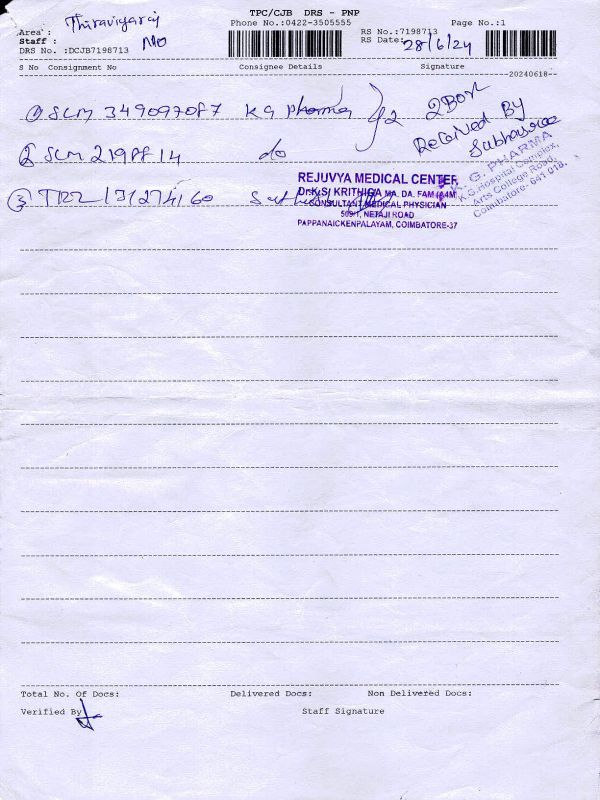 TPC/CJB DRS - PNP
Thiraviyaraj
Area :
Phone No.:0422-3505555
Page No.:1
Staff :
RS No.:7198713
DRS No. :DCJB7198713
RS Date: 28/6/24
S No Consignment No Consignee Details Signature
--20240618--
① SCM 349097087 KG Pharma
2 Box
Received By
② SCM 2198814 do
K. G. PHARMA
K.G.Hospital Complex,
Arts College Road,
Coimbatore- 641 018.
③
REJUVYA MEDICAL CENTER
Dr.K.S. KRITHIGA MA. DA. FAM (A4M
CONSULTANT MEDICAL PHYSICIAN
509/1, NETAJI ROAD
PAPPANAICKENPALAYAM, COIMBATORE-37
Total No. Of Docs: Delivered Docs: Non Delivered Docs:
Verified By Staff Signature